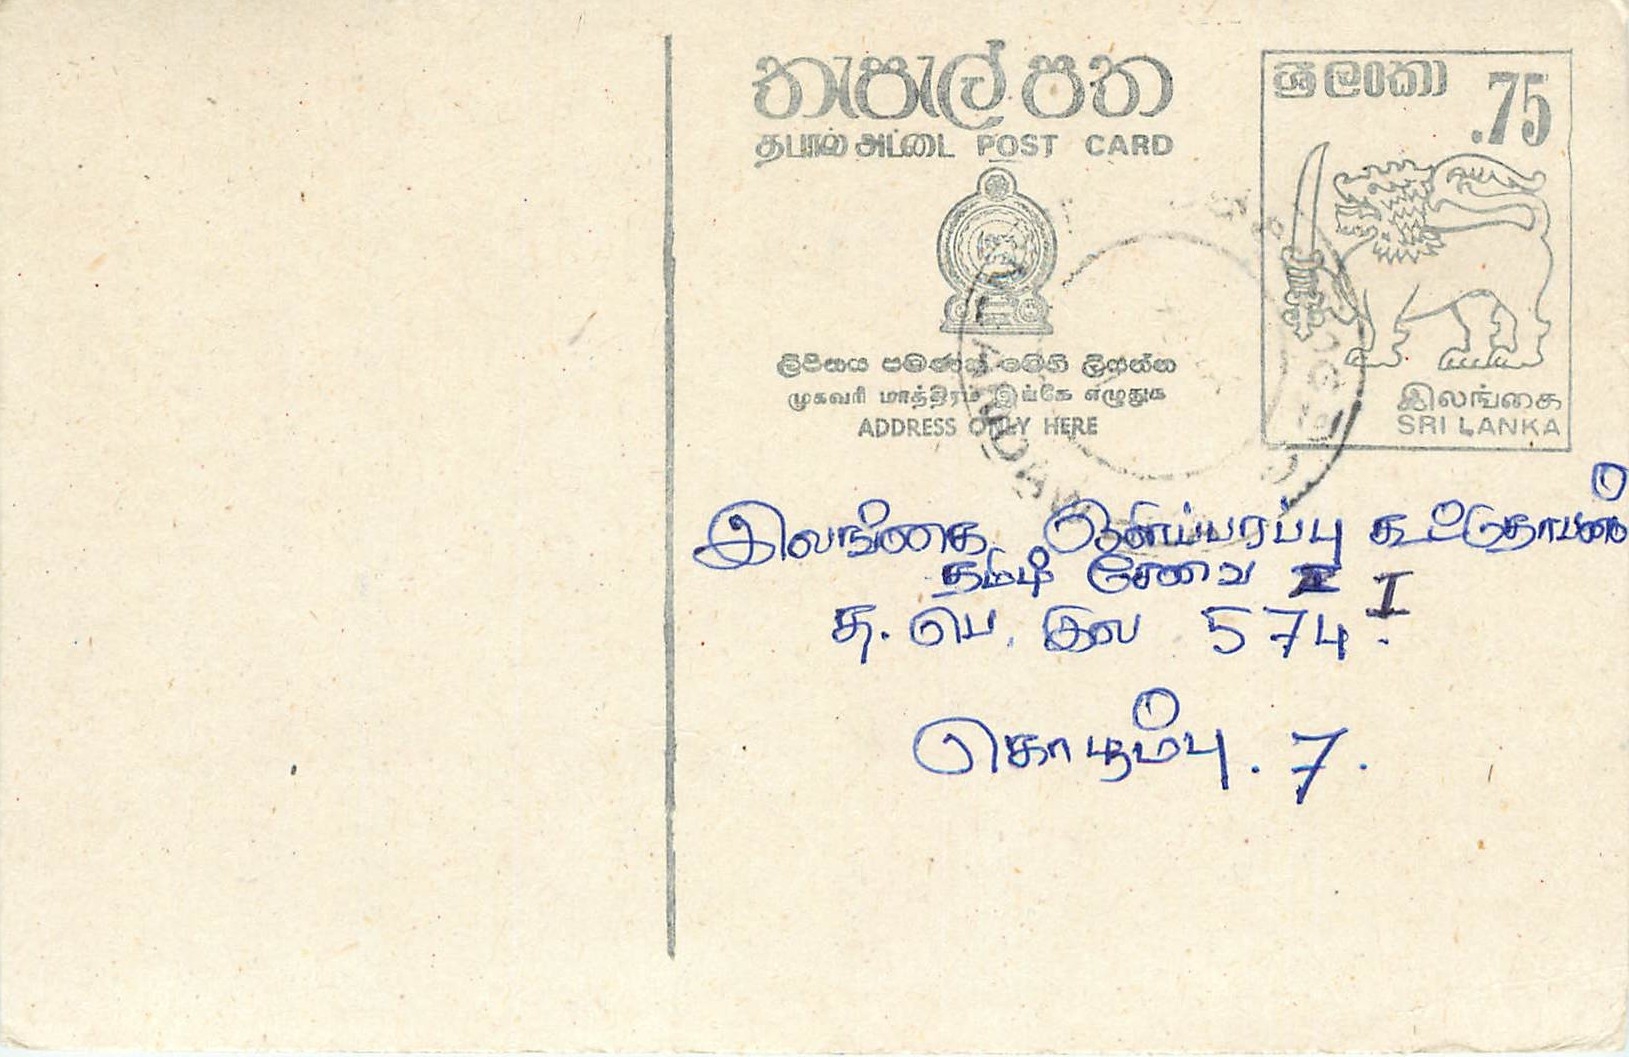 තැපැල් පත
தபால் அட்டை POST CARD
ශ්‍රී ලංකා .75
ලිපිනය පමණක් මෙහි ලියන්න
முகவரி மாத்திரம் இங்கே எழுதுக
ADDRESS ONLY HERE
இலங்கை
SRI LANKA
இலங்கை ஒளிபரப்பு
தமிழ் சேவை I
த. பெ. இல 574.
கொழும்பு . 7 .